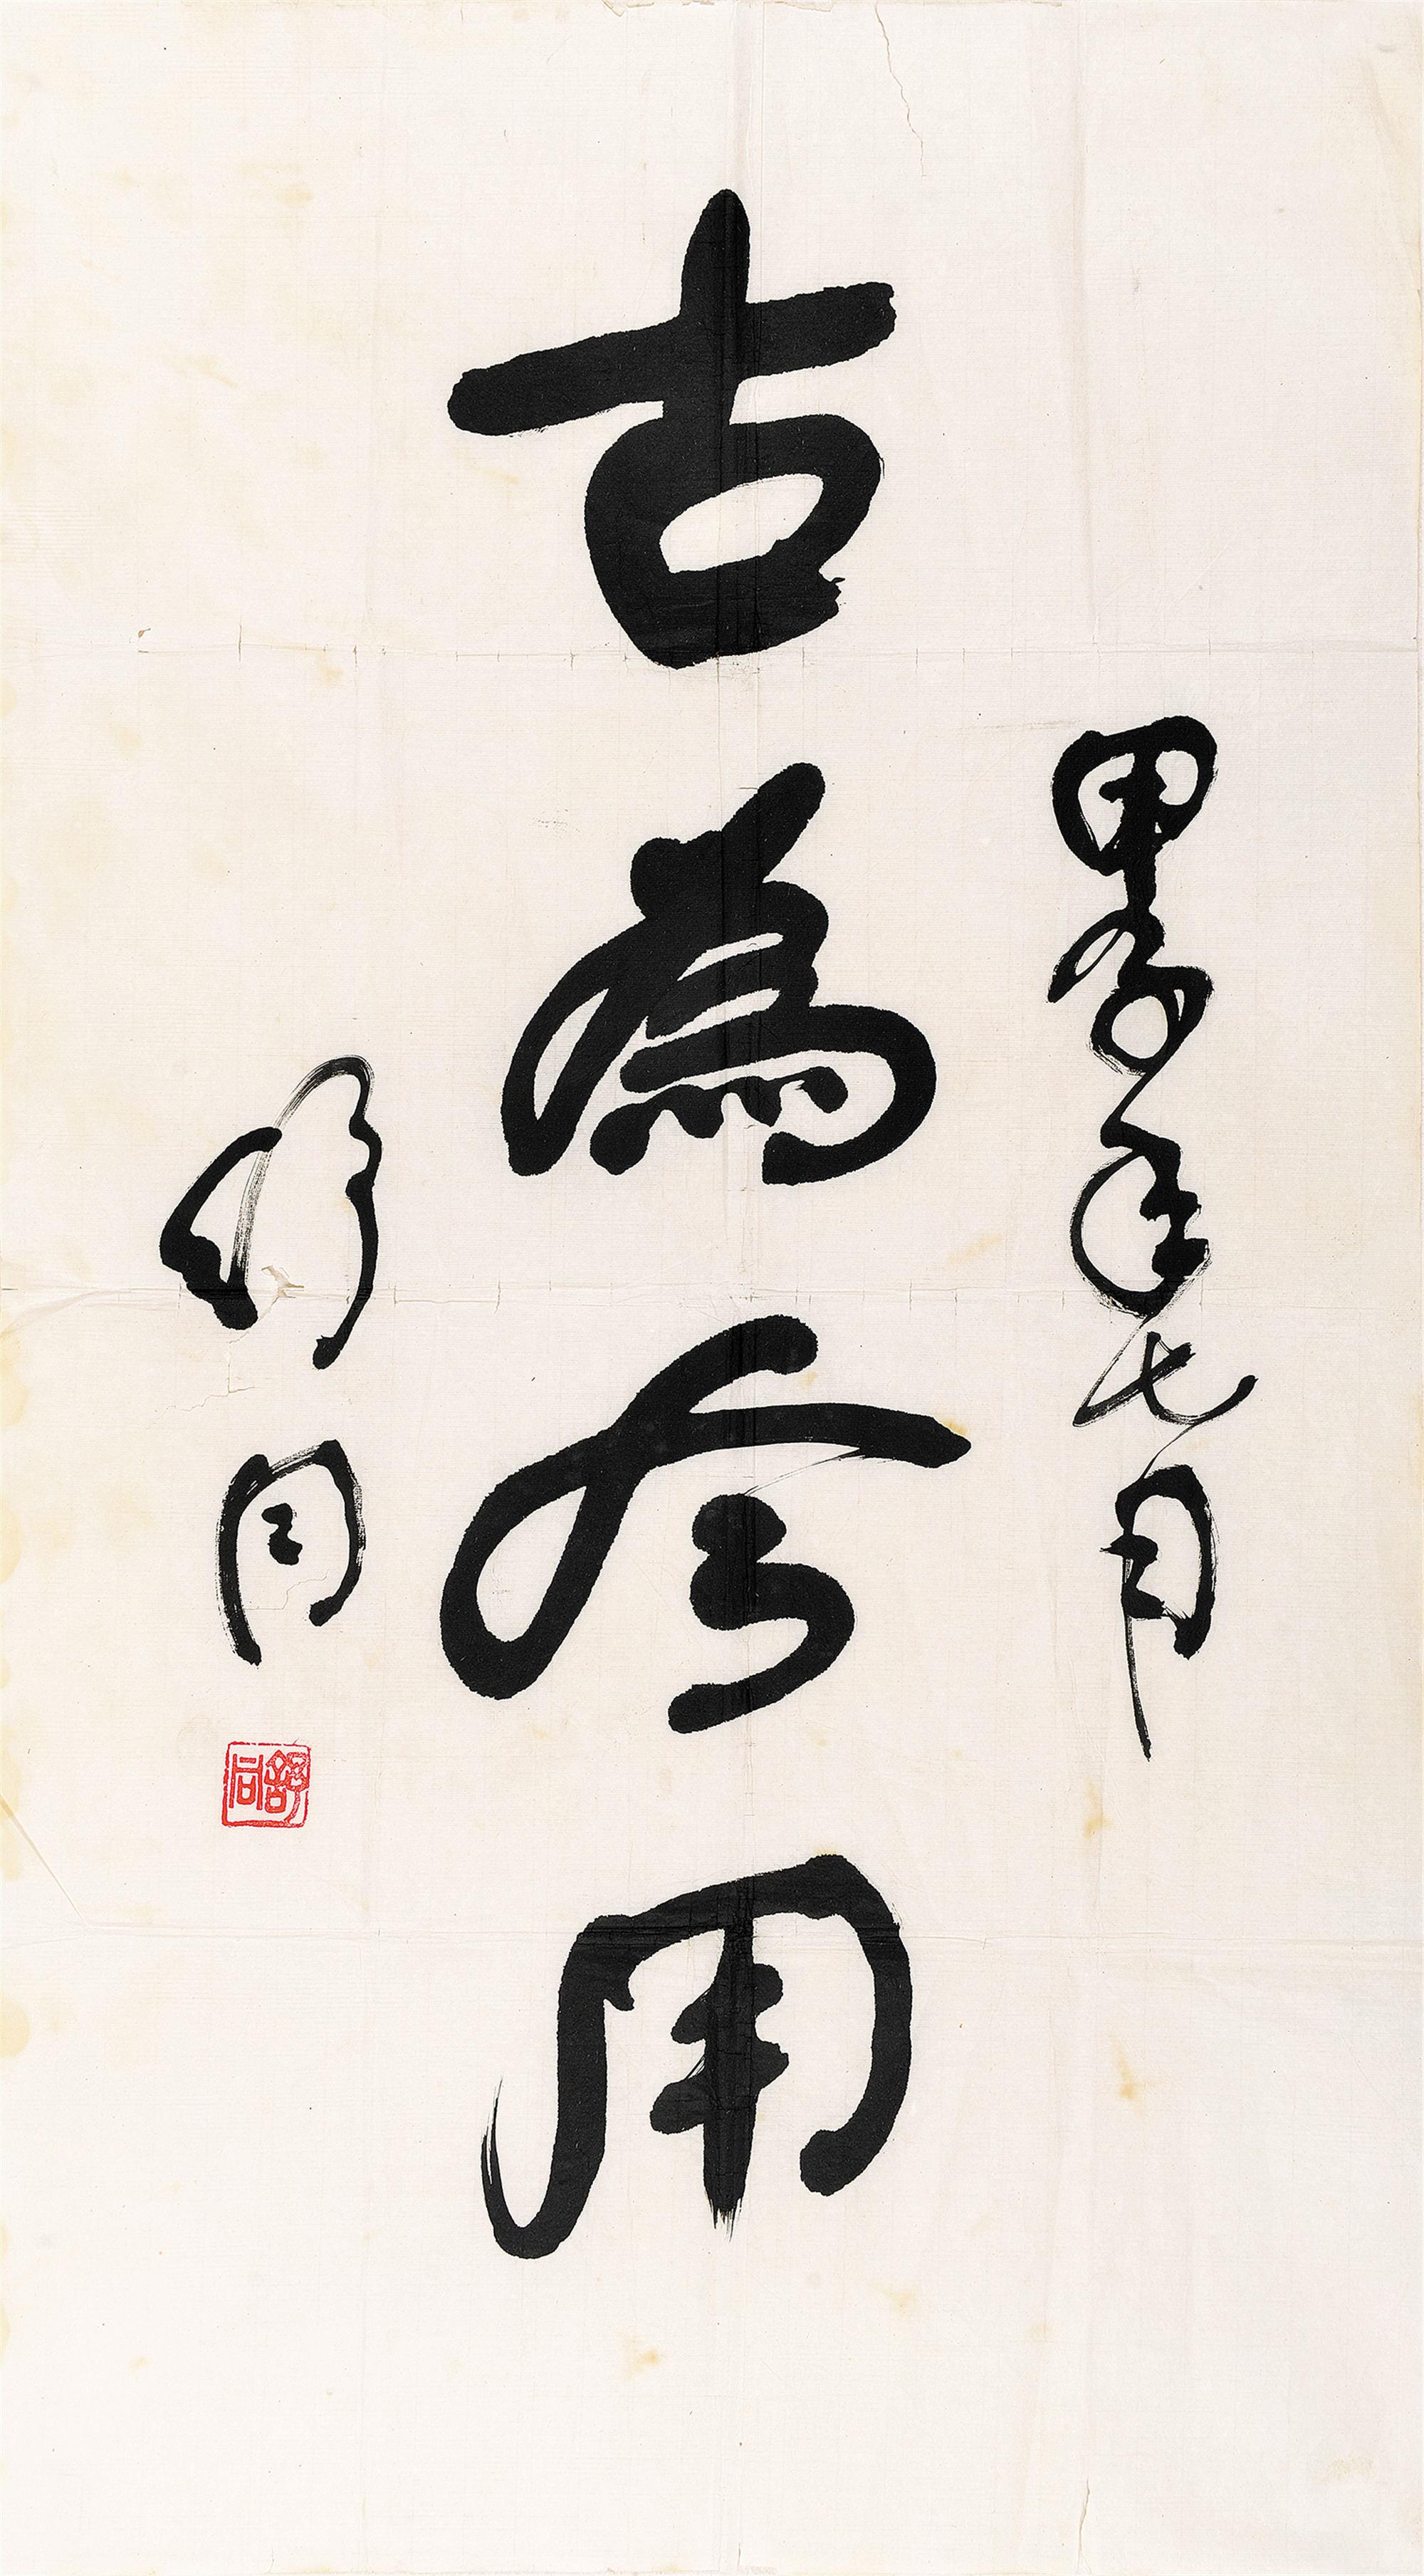 甲子年七月
古為今用
舒同
舒同